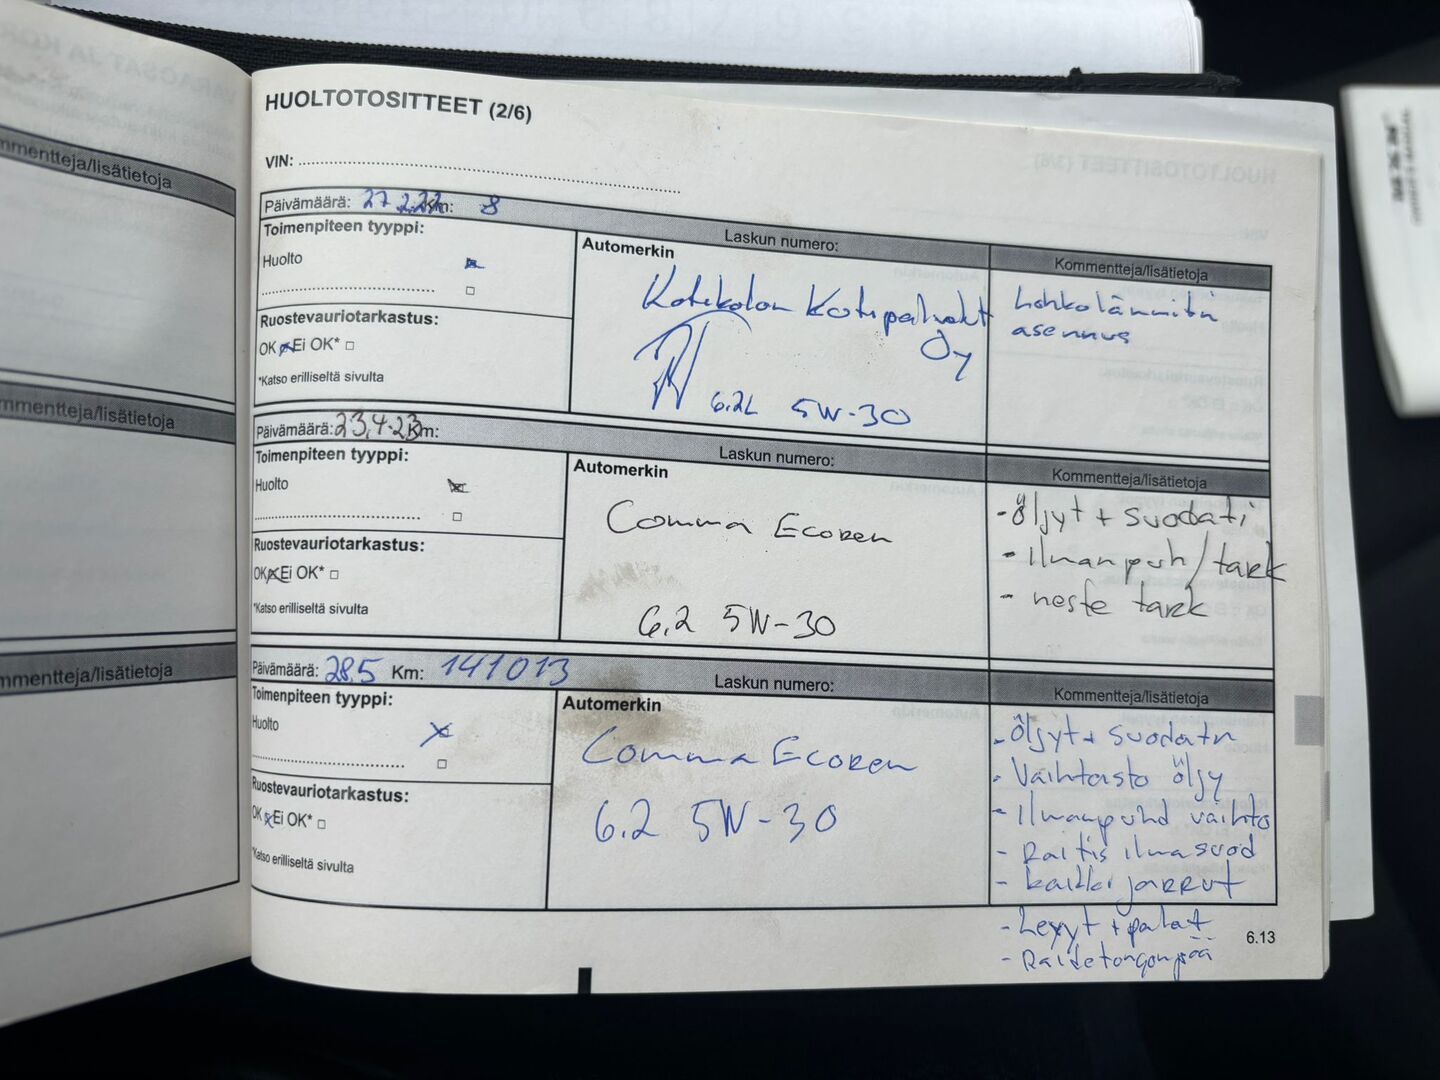 HUOLTOTOSITTEET (2/6)
VIN:
Päivämäärä: 27 2.22 Km: 8
Laskun numero:
Toimenpiteen tyyppi:
Huolto
Ruostevauriotarkastus:
OK Ei OK*
*Katso erilliseltä sivulta
Automerkin
Kotikolon Kotipalvelut
Oy
6.2L 5W-30
Kommentteja/lisätietoja
Lohkolämmitin
asennus
Päivämäärä: 23,4.23 Km:
Laskun numero:
Toimenpiteen tyyppi:
Huolto
Ruostevauriotarkastus:
OK Ei OK*
*Katso erilliseltä sivulta
Automerkin
Comma Ecoren
6.2 5W-30
Kommentteja/lisätietoja
- öljyt + suodati
- ilmanpuh/tark
- neste tark
Päivämäärä: 28.5 Km: 141013
Laskun numero:
Toimenpiteen tyyppi:
Huolto
Ruostevauriotarkastus:
OK Ei OK*
*Katso erilliseltä sivulta
Automerkin
Comma Ecoren
6.2 5W-30
Kommentteja/lisätietoja
- öljyt + suodatin
- Vaihtoisto öljy
- ilmanpuhd vaihto
- Raitis ilmasuod
- kaikki jarrut
- Levyt + palat
- Raidetangonpää
6.13
mmentteja/lisätietoja
mmentteja/lisätietoja
mmentteja/lisätietoja